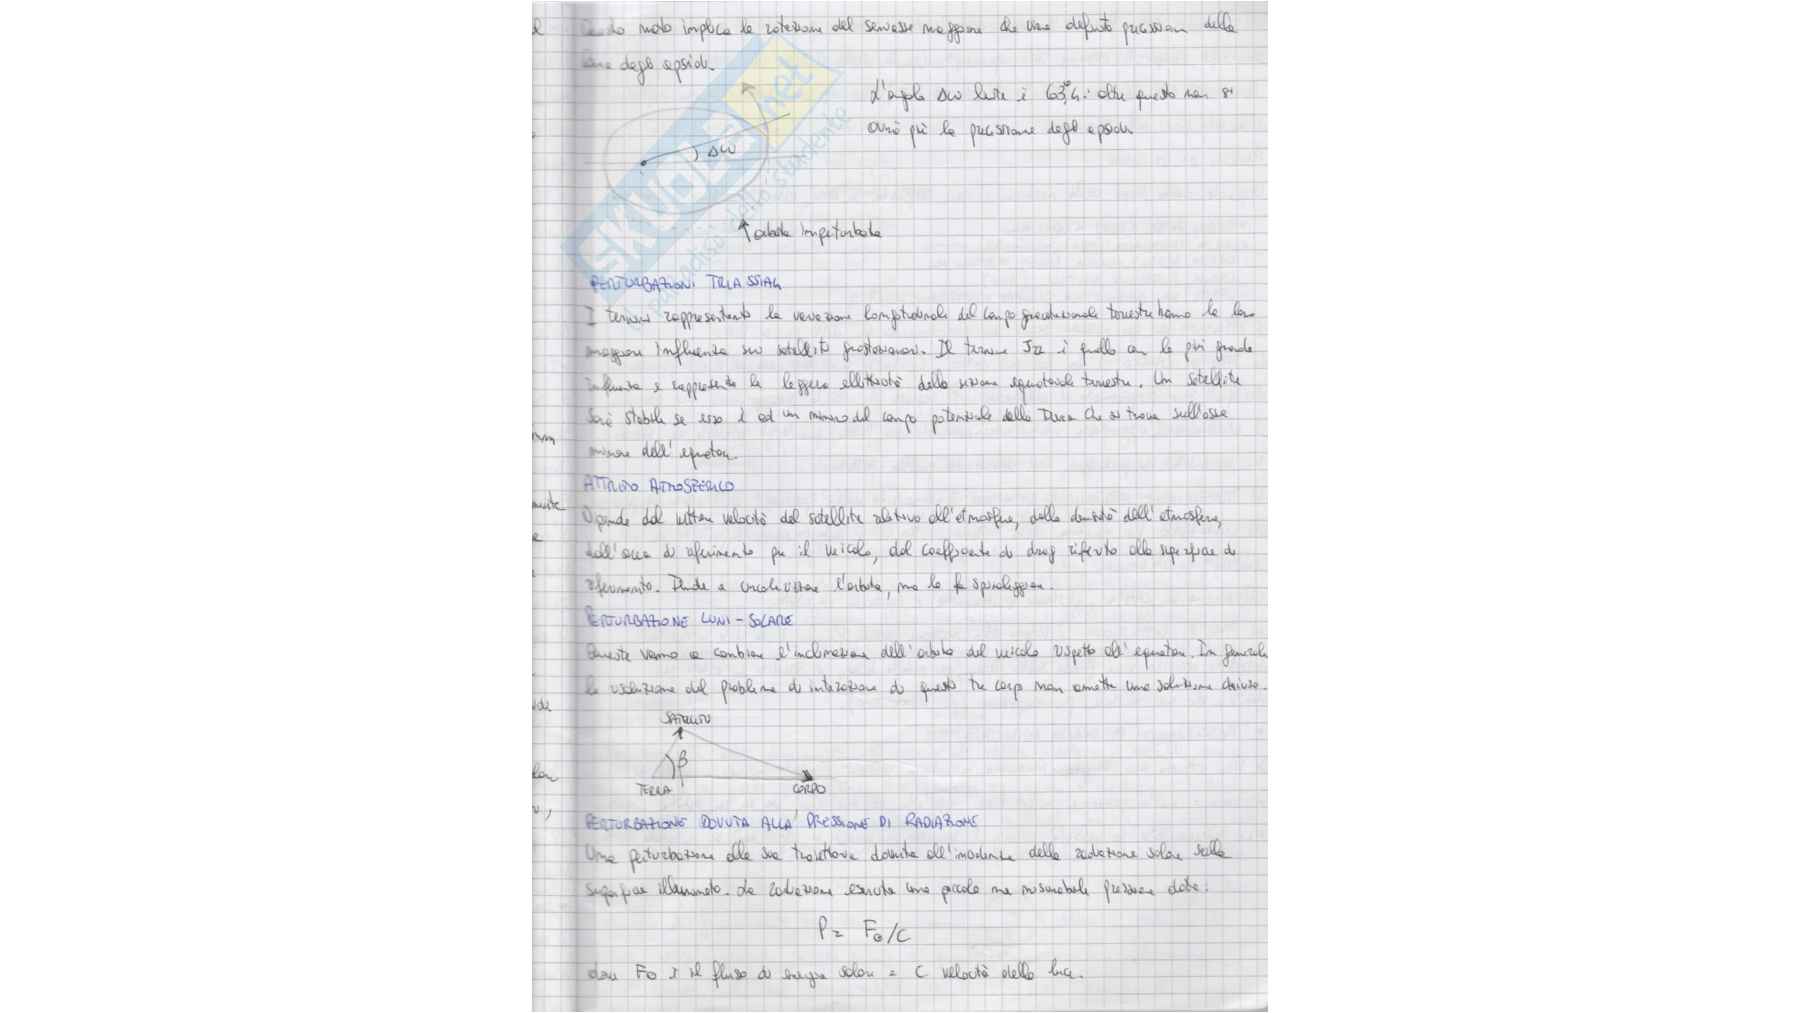 moto implica la rotazione del semiasse maggiore che viene definito precessione della
linea degli apsidi.
L'angolo Δω limite è 63°,4: oltre questo non si
avrà più la precessione degli apsidi.
Δω
orbita imperturbata
SKUOLA.net
il paradiso dello studente
PERTURBAZIONI TRIASSIALI
I termini rappresentanti la variazione longitudinale del campo gravitazionale terrestre hanno la loro
maggiore influenza sui satelliti geostazionari. Il termine J22 è quello con la più grande
influenza e rappresenta la leggera ellitticità della sezione equatoriale terrestre. Un satellite
sarà stabile se esso è ad un minimo del campo potenziale della Terra che si trova sull'asse
minore dell'equatore.
ATTRITO ATMOSFERICO
Dipende dal vettore velocità del satellite relativo all'atmosfera, dalla densità dell'atmosfera,
dall'area di riferimento per il veicolo, dal coefficiente di drag riferito alla superficie di
riferimento. Tende a circolarizzare l'orbita, ma la fa spiraleggiare.
PERTURBAZIONE LUNI-SOLARE
Queste vanno a cambiare l'inclinazione dell'orbita del veicolo rispetto all'equatore. In generale
la risoluzione del problema di interazione di questi tre corpi non ammette una soluzione chiusa.
SATELLITE
β
TERRA CORPO
PERTURBAZIONE DOVUTA ALLA PRESSIONE DI RADIAZIONE
Una perturbazione alla sua traiettoria dovuta all'incidenza della radiazione solare sulla
superficie illuminata. La radiazione esercita una piccola ma misurabile pressione data:
P = F⊙/c
dove F⊙ è il flusso di energia solare e c velocità della luce.